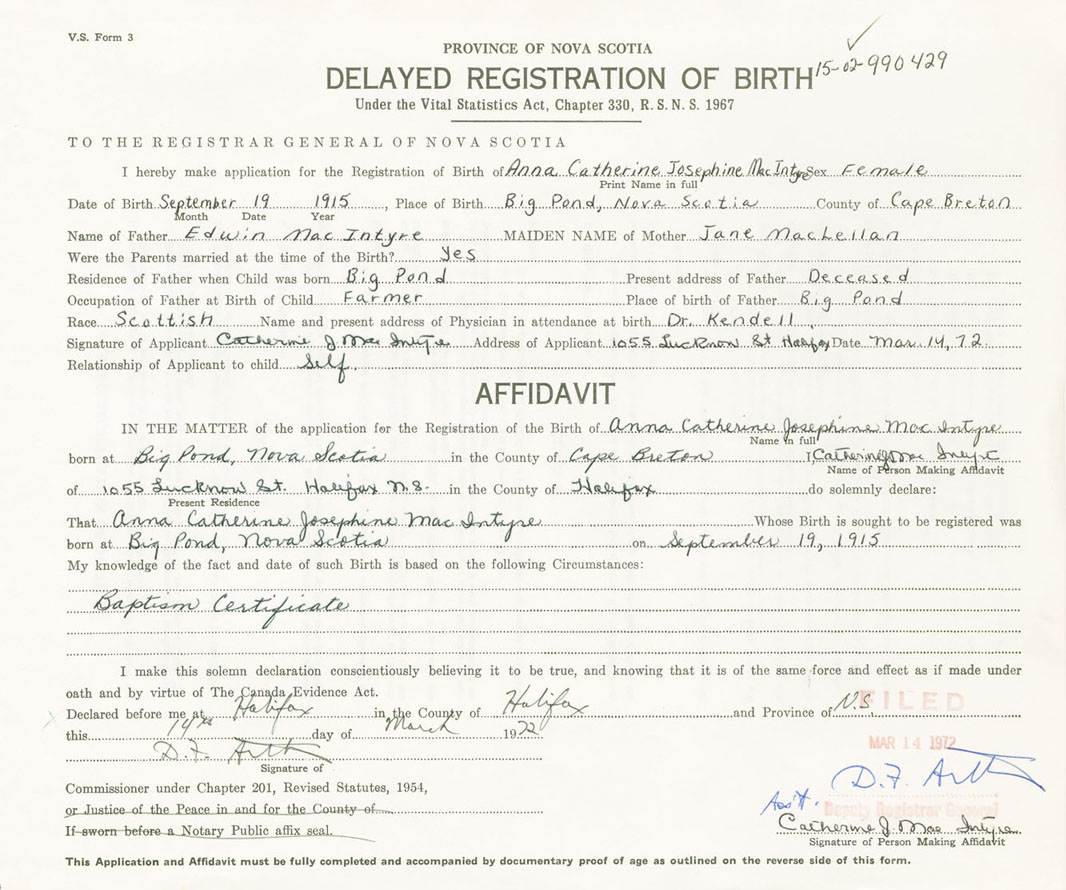 V.S. Form 3
PROVINCE OF NOVA SCOTIA
DELAYED REGISTRATION OF BIRTH 15-02-990429
Under the Vital Statistics Act, Chapter 330, R. S. N. S. 1967
TO THE REGISTRAR GENERAL OF NOVA SCOTIA
I hereby make application for the Registration of Birth of Anna Catherine Josephine MacIntyre Sex Female
Print Name in full
Date of Birth September 19 1915, Place of Birth Big Pond, Nova Scotia County of Cape Breton
Month Date Year
Name of Father Edwin MacIntyre MAIDEN NAME of Mother Jane MacLellan
Were the Parents married at the time of the Birth? Yes
Residence of Father when Child was born Big Pond Present address of Father Deceased
Occupation of Father at Birth of Child Farmer Place of birth of Father Big Pond
Race Scottish Name and present address of Physician in attendance at birth Dr. Kendell,
Signature of Applicant Catherine J Mac Intyre Address of Applicant 1055 Lucknow St Halifax Date Mar. 14, 72.
Relationship of Applicant to child Self.
AFFIDAVIT
IN THE MATTER of the application for the Registration of the Birth of Anna Catherine Josephine Mac Intyre
Name in full
born at Big Pond, Nova Scotia in the County of Cape Breton I, Catherine J Mac Intyre
Name of Person Making Affidavit
of 1055 Lucknow St. Halifax N.S. in the County of Halifax do solemnly declare:
Present Residence
That Anna Catherine Josephine Mac Intyre Whose Birth is sought to be registered was
born at Big Pond, Nova Scotia on September 19, 1915
My knowledge of the fact and date of such Birth is based on the following Circumstances:
Baptism Certificate
I make this solemn declaration conscientiously believing it to be true, and knowing that it is of the same force and effect as if made under
oath and by virtue of The Canada Evidence Act.
FILED
Declared before me at Halifax in the County of Halifax and Province of N.S.
this 14th day of March 1972
MAR 14 1972
D.F. Arth
Signature of
D.F. Arth
Commissioner under Chapter 201, Revised Statutes, 1954,
Ass't. Deputy Registrar General
or Justice of the Peace in and for the County of
Catherine J Mac Intyre
If sworn before a Notary Public affix seal.
Signature of Person Making Affidavit
This Application and Affidavit must be fully completed and accompanied by documentary proof of age as outlined on the reverse side of this form.